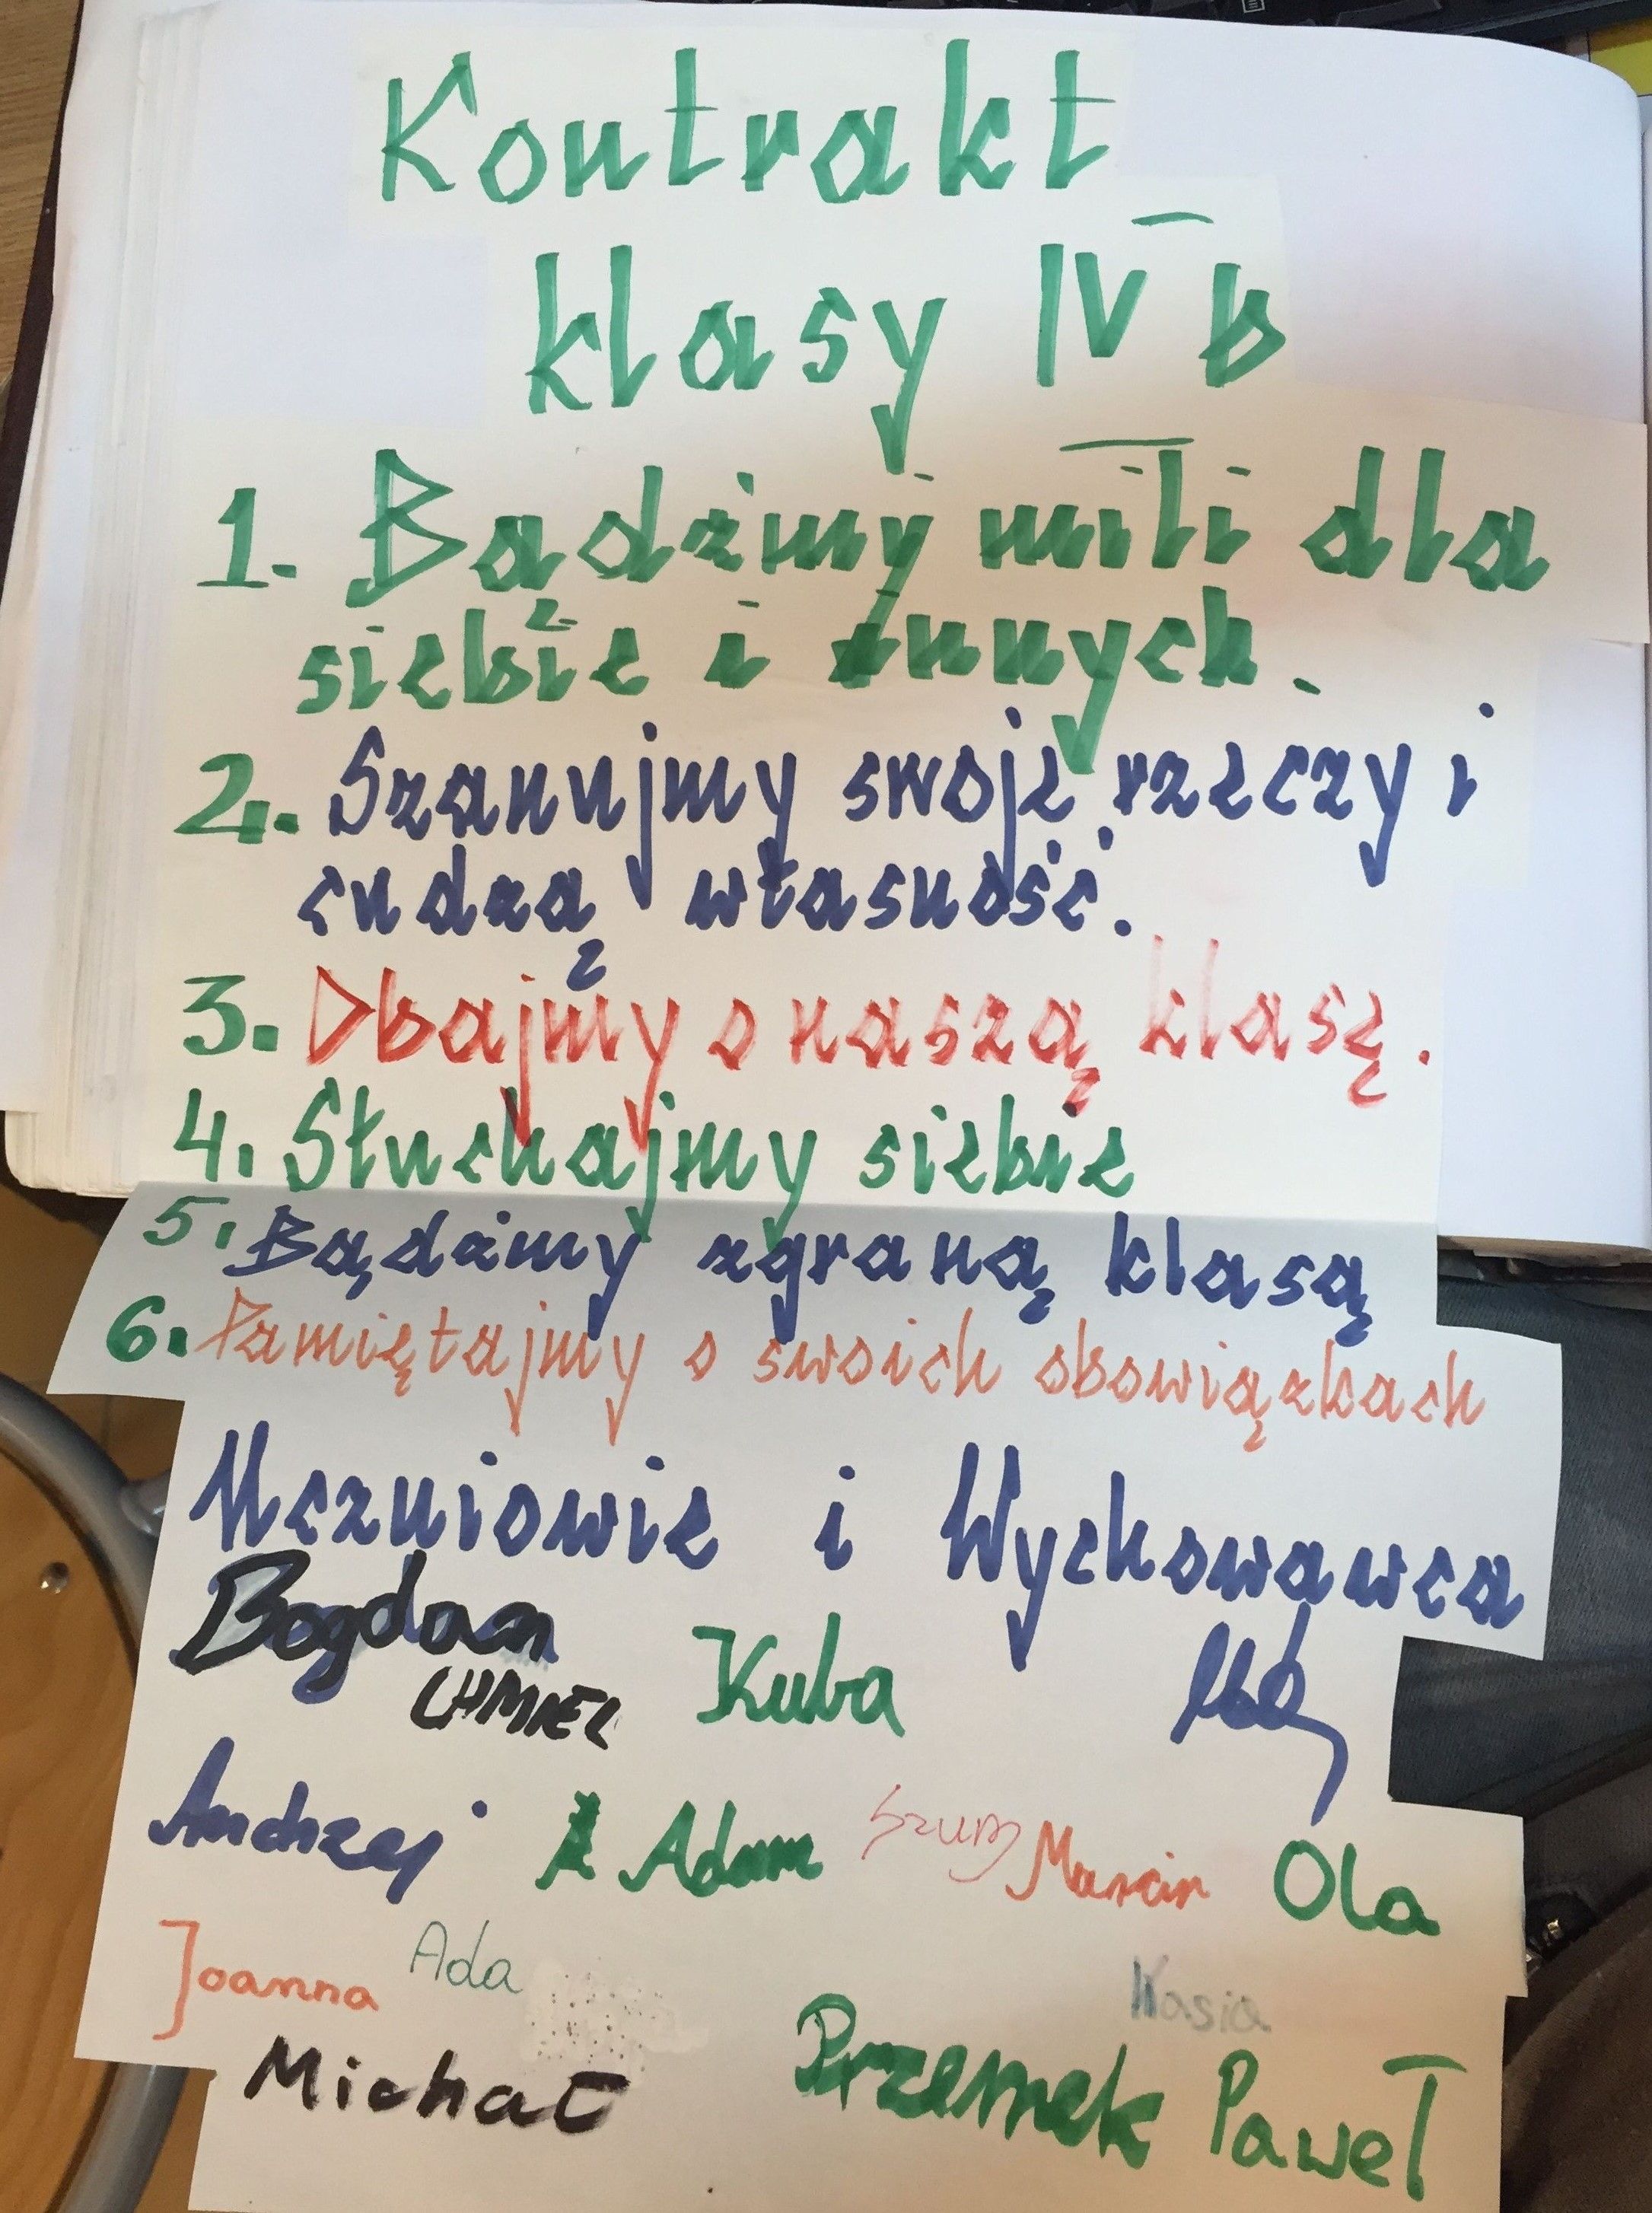 Kontrakt
klasy IV b
1. Bądźmy mili dla
siebie i innych.
2. Szanujmy swoje rzeczy i
cudzą własność.
3. Dbajmy o naszą klasę.
4. Słuchajmy siebie
5. Bądźmy zgraną klasą
6. Pamiętajmy o swoich obowiązkach
Uczniowie i Wychowawca
Bogdan
CHMIEL Kuba
Andrzej A Adam Marcin Ola
Joanna Ada Kasia
Michał Przemek Paweł